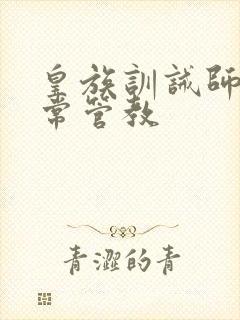 皇族訓誡師
常管教
青澀的青